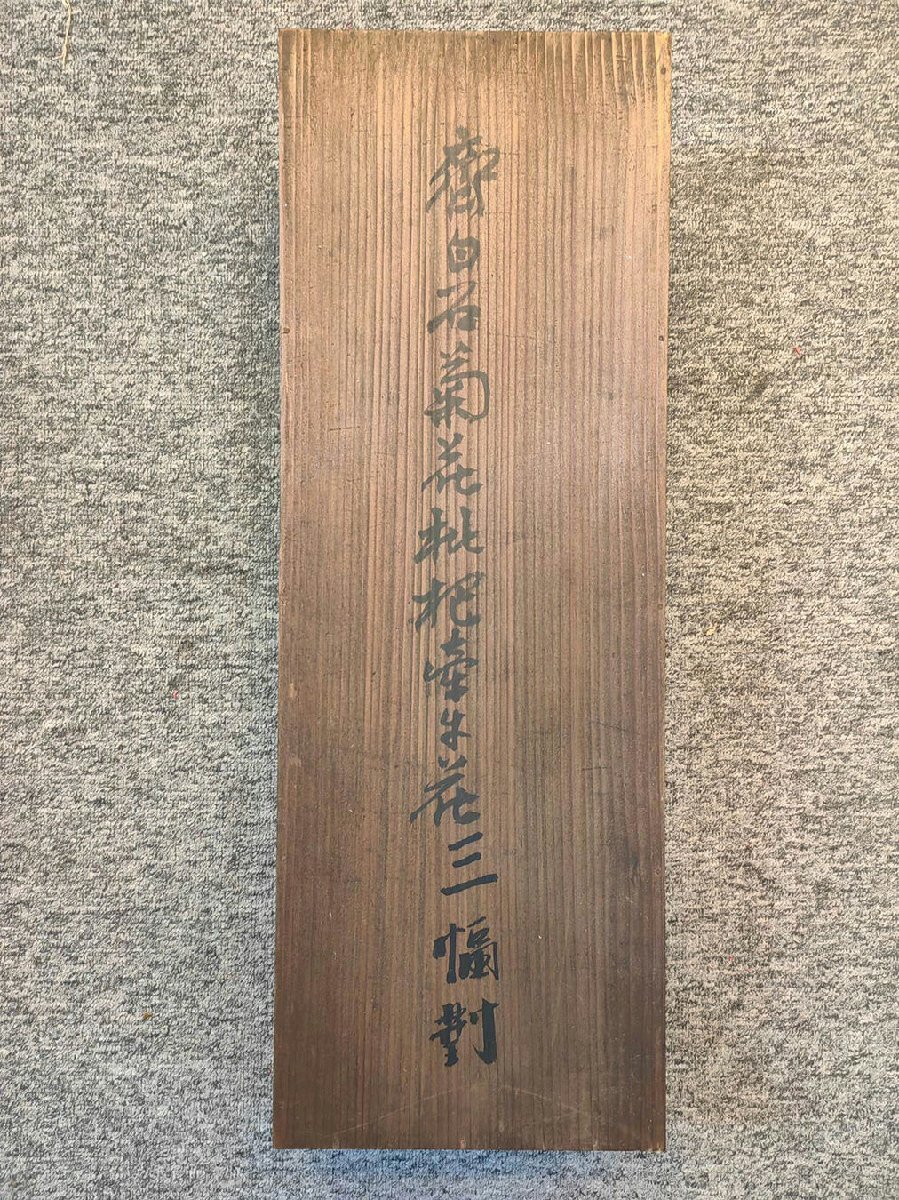 齊白石菊花枇杷牽牛花三幅對